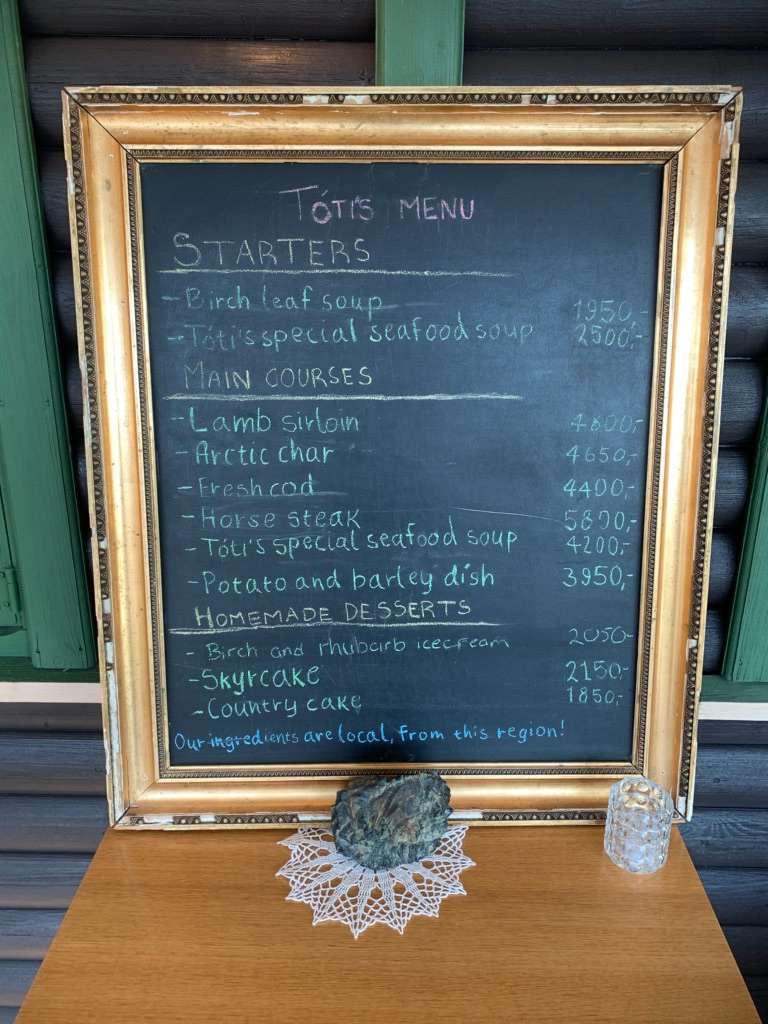 TÓTI'S MENU
STARTERS
- Birch leaf soup 1950,-
- Tóti's special seafood soup 2500,-
MAIN COURSES
- Lamb sirloin 4800,-
- Arctic char 4650,-
- Fresh cod 4400,-
- Horse steak 5890,-
- Tóti's special seafood soup 4200,-
- Potato and barley dish 3950,-
HOMEMADE DESSERTS
- Birch and rhubarb icecream 2050-
- Skyrcake 2150,-
- Country cake 1850,-
Our ingredients are local, from this region!